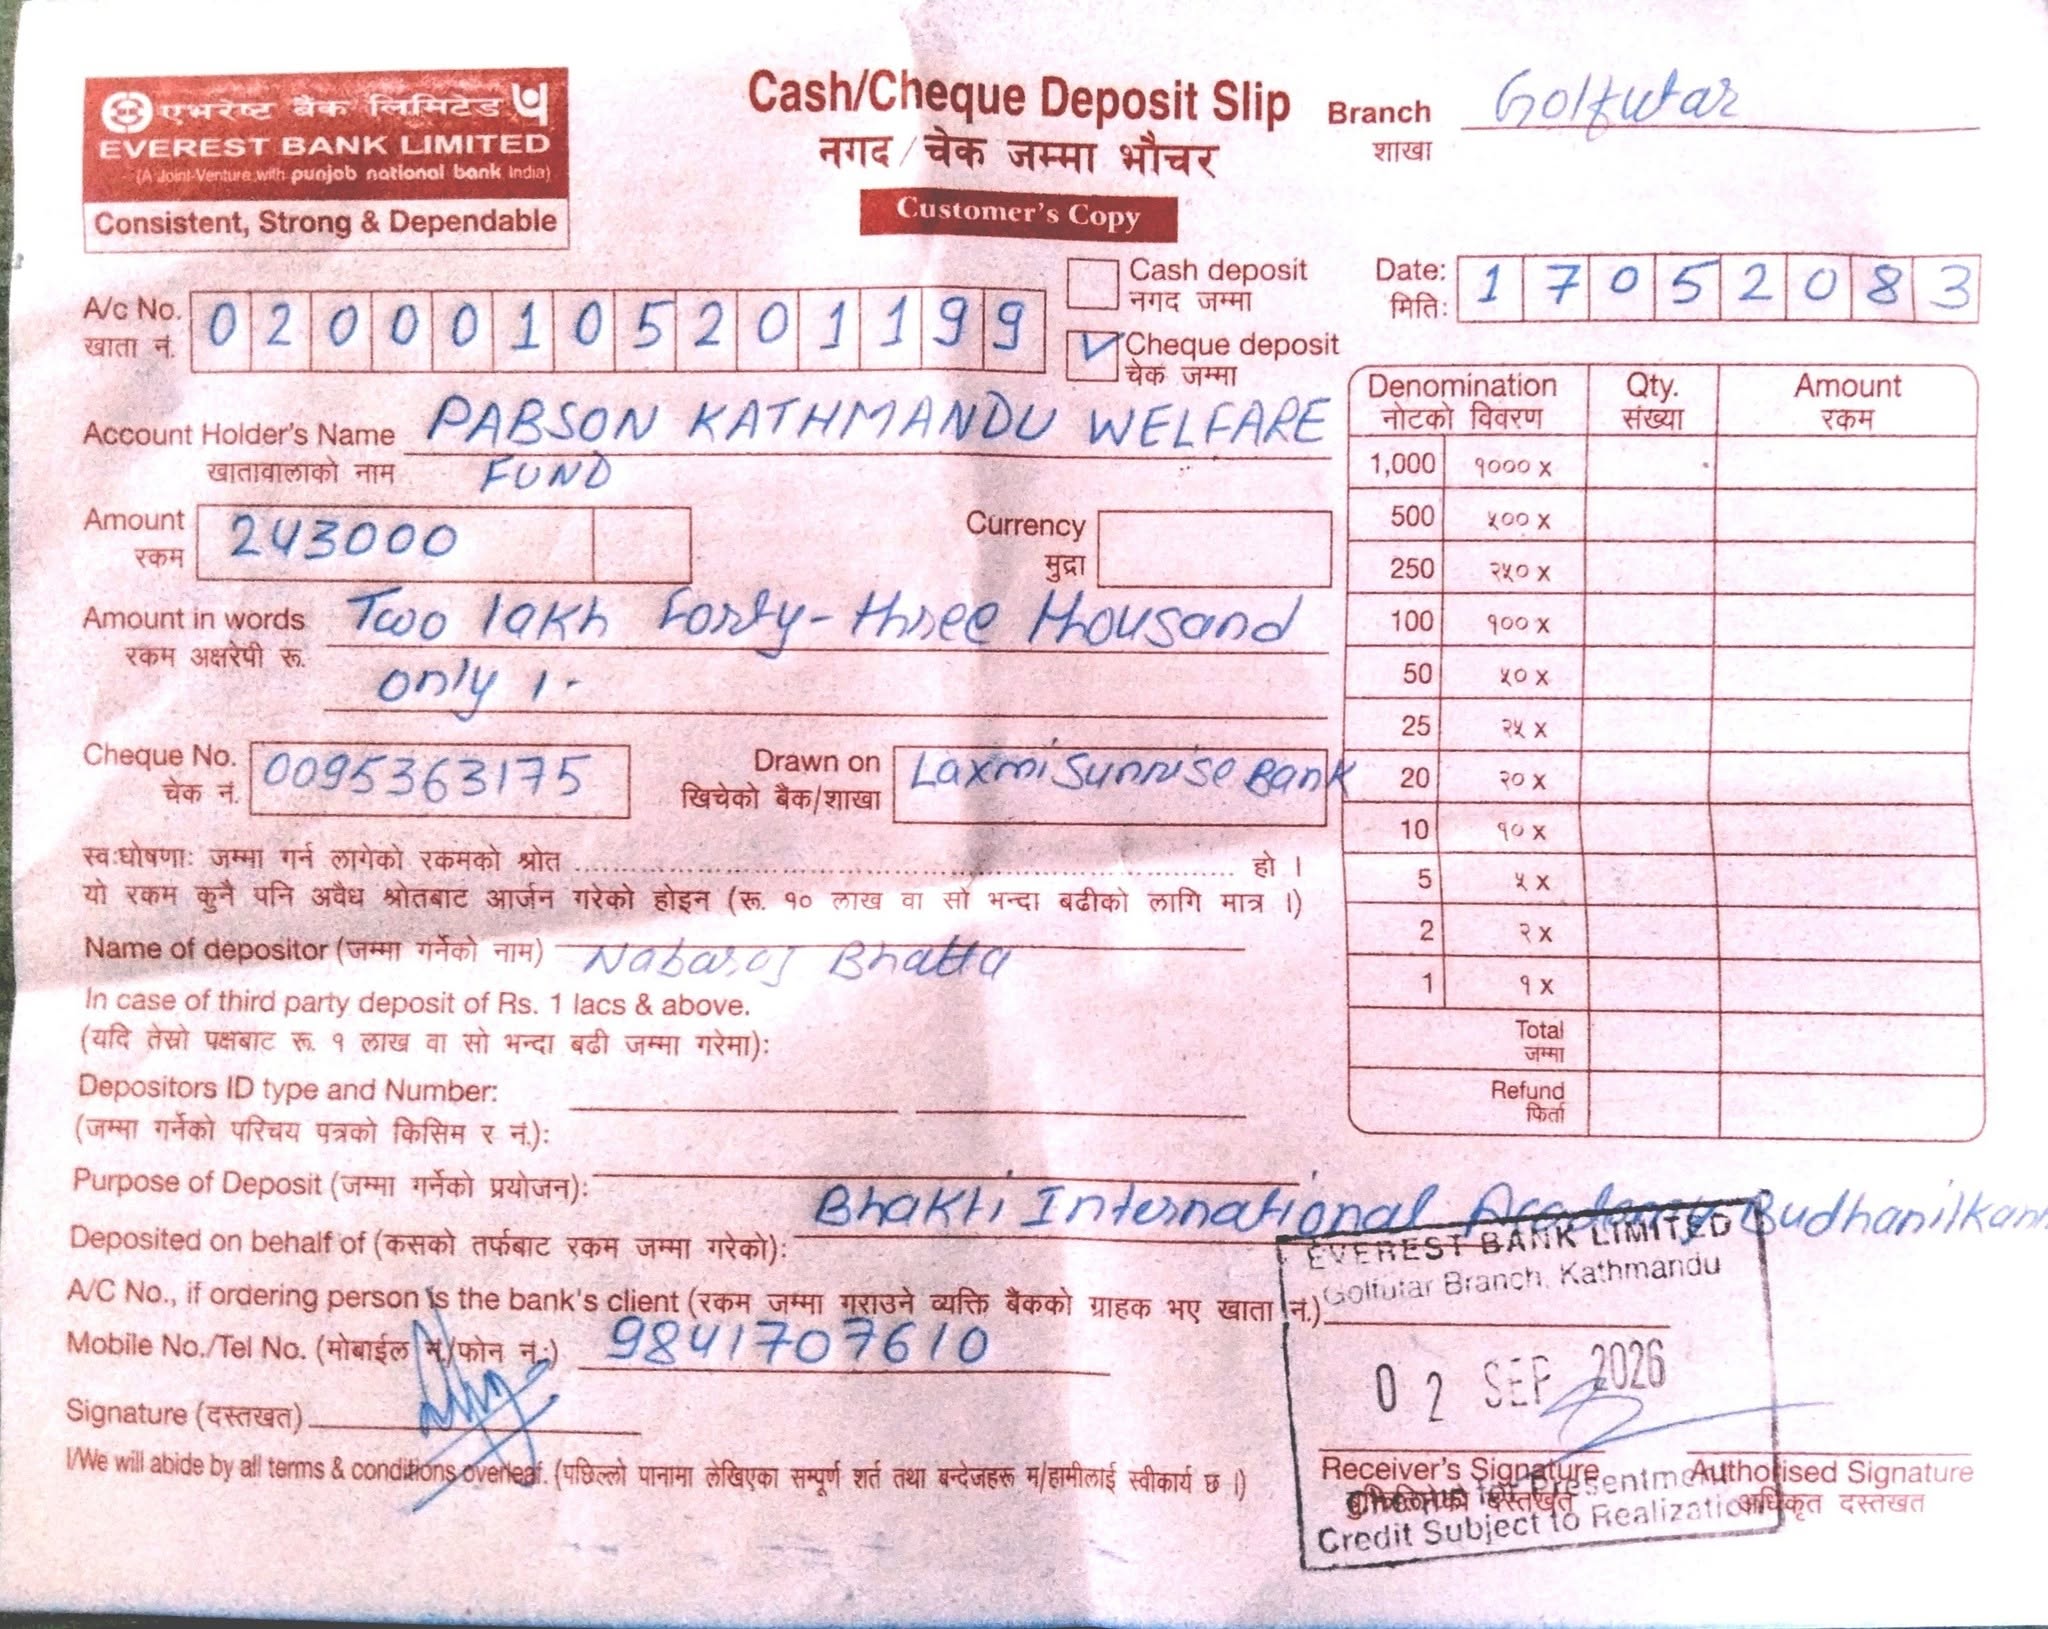 एभरेष्ट बैंक लिमिटेड
EVEREST BANK LIMITED
(A Joint-Venture with punjab national bank India)
Consistent, Strong & Dependable
Cash/Cheque Deposit Slip
नगद / चेक जम्मा भौचर
Customer's Copy
Branch Golfutar
शाखा
A/c No. 02000105201199
खाता नं.
Cash deposit
नगद जम्मा
Cheque deposit
चेक जम्मा
Date: 17052083
मिति:
Account Holder's Name PABSON KATHMANDU WELFARE
खातावालाको नाम FUND
Amount 243000
रकम
Currency
मुद्रा
Amount in words Two lakh Forty-three thousand
रकम अक्षरेपी रू. only /-
Cheque No. 0095363175
चेक नं.
Drawn on Laxmi Sunrise Bank
खिचेको बैंक/शाखा
Denomination Qty. Amount
नोटको विवरण संख्या रकम
1,000 १००० x
500 ५०० x
250 २५० x
100 १०० x
50 ५० x
25 २५ x
20 २० x
10 १० x
5 ५ x
2 २ x
1 १ x
Total
जम्मा
Refund
फिर्ता
स्व:घोषणा: जम्मा गर्न लागेको रकमको श्रोत ........ हो ।
यो रकम कुनै पनि अवैध श्रोतबाट आर्जन गरेको होइन (रू. १० लाख वा सो भन्दा बढीको लागि मात्र ।)
Name of depositor (जम्मा गर्नेको नाम) Nabaraj Bhatta
In case of third party deposit of Rs. 1 lacs & above.
(यदि तेस्रो पक्षबाट रू. १ लाख वा सो भन्दा बढी जम्मा गरेमा):
Depositors ID type and Number:
(जम्मा गर्नेको परिचय पत्रको किसिम र नं.):
Purpose of Deposit (जम्मा गर्नेको प्रयोजन):
Deposited on behalf of (कसको तर्फबाट रकम जम्मा गरेको): Bhakti International Academy Budhanilkan
A/C No., if ordering person is the bank's client (रकम जम्मा गराउने व्यक्ति बैंकको ग्राहक भए खाता नं.)
Mobile No./Tel No. (मोबाईल नं/फोन नं.:) 9841707610
Signature (दस्तखत)
I/We will abide by all terms & conditions overleaf. (पछिल्लो पानामा लेखिएका सम्पूर्ण शर्त तथा बन्देजहरू म/हामीलाई स्वीकार्य छ ।)
EVEREST BANK LIMITED
Golfutar Branch, Kathmandu
02 SEP 2026
Receiver's Signature
दस्तखत
Authorised Signature
अधिकृत दस्तखत
for Presentment
Credit Subject to Realization